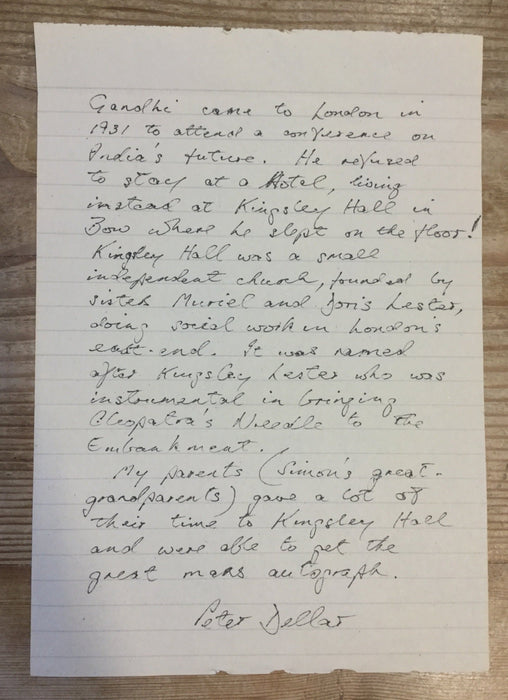 Gandhi came to London in
1931 to attend a conference on
India's future. He refused
to stay at a Hotel, living
instead at Kingsley Hall in
Bow where he slept on the floor!
Kingsley Hall was a small
independent church, founded by
sister Muriel and Doris Lester,
doing social work in London's
east-end. It was named
after Kingsley Lester who was
instrumental in bringing
Cleopatra's Needle to the
Embankment.
My parents (Simon's great-
grandparents) gave a lot of
their time to Kingsley Hall
and were able to get the
great mans autograph.
Peter Dellar